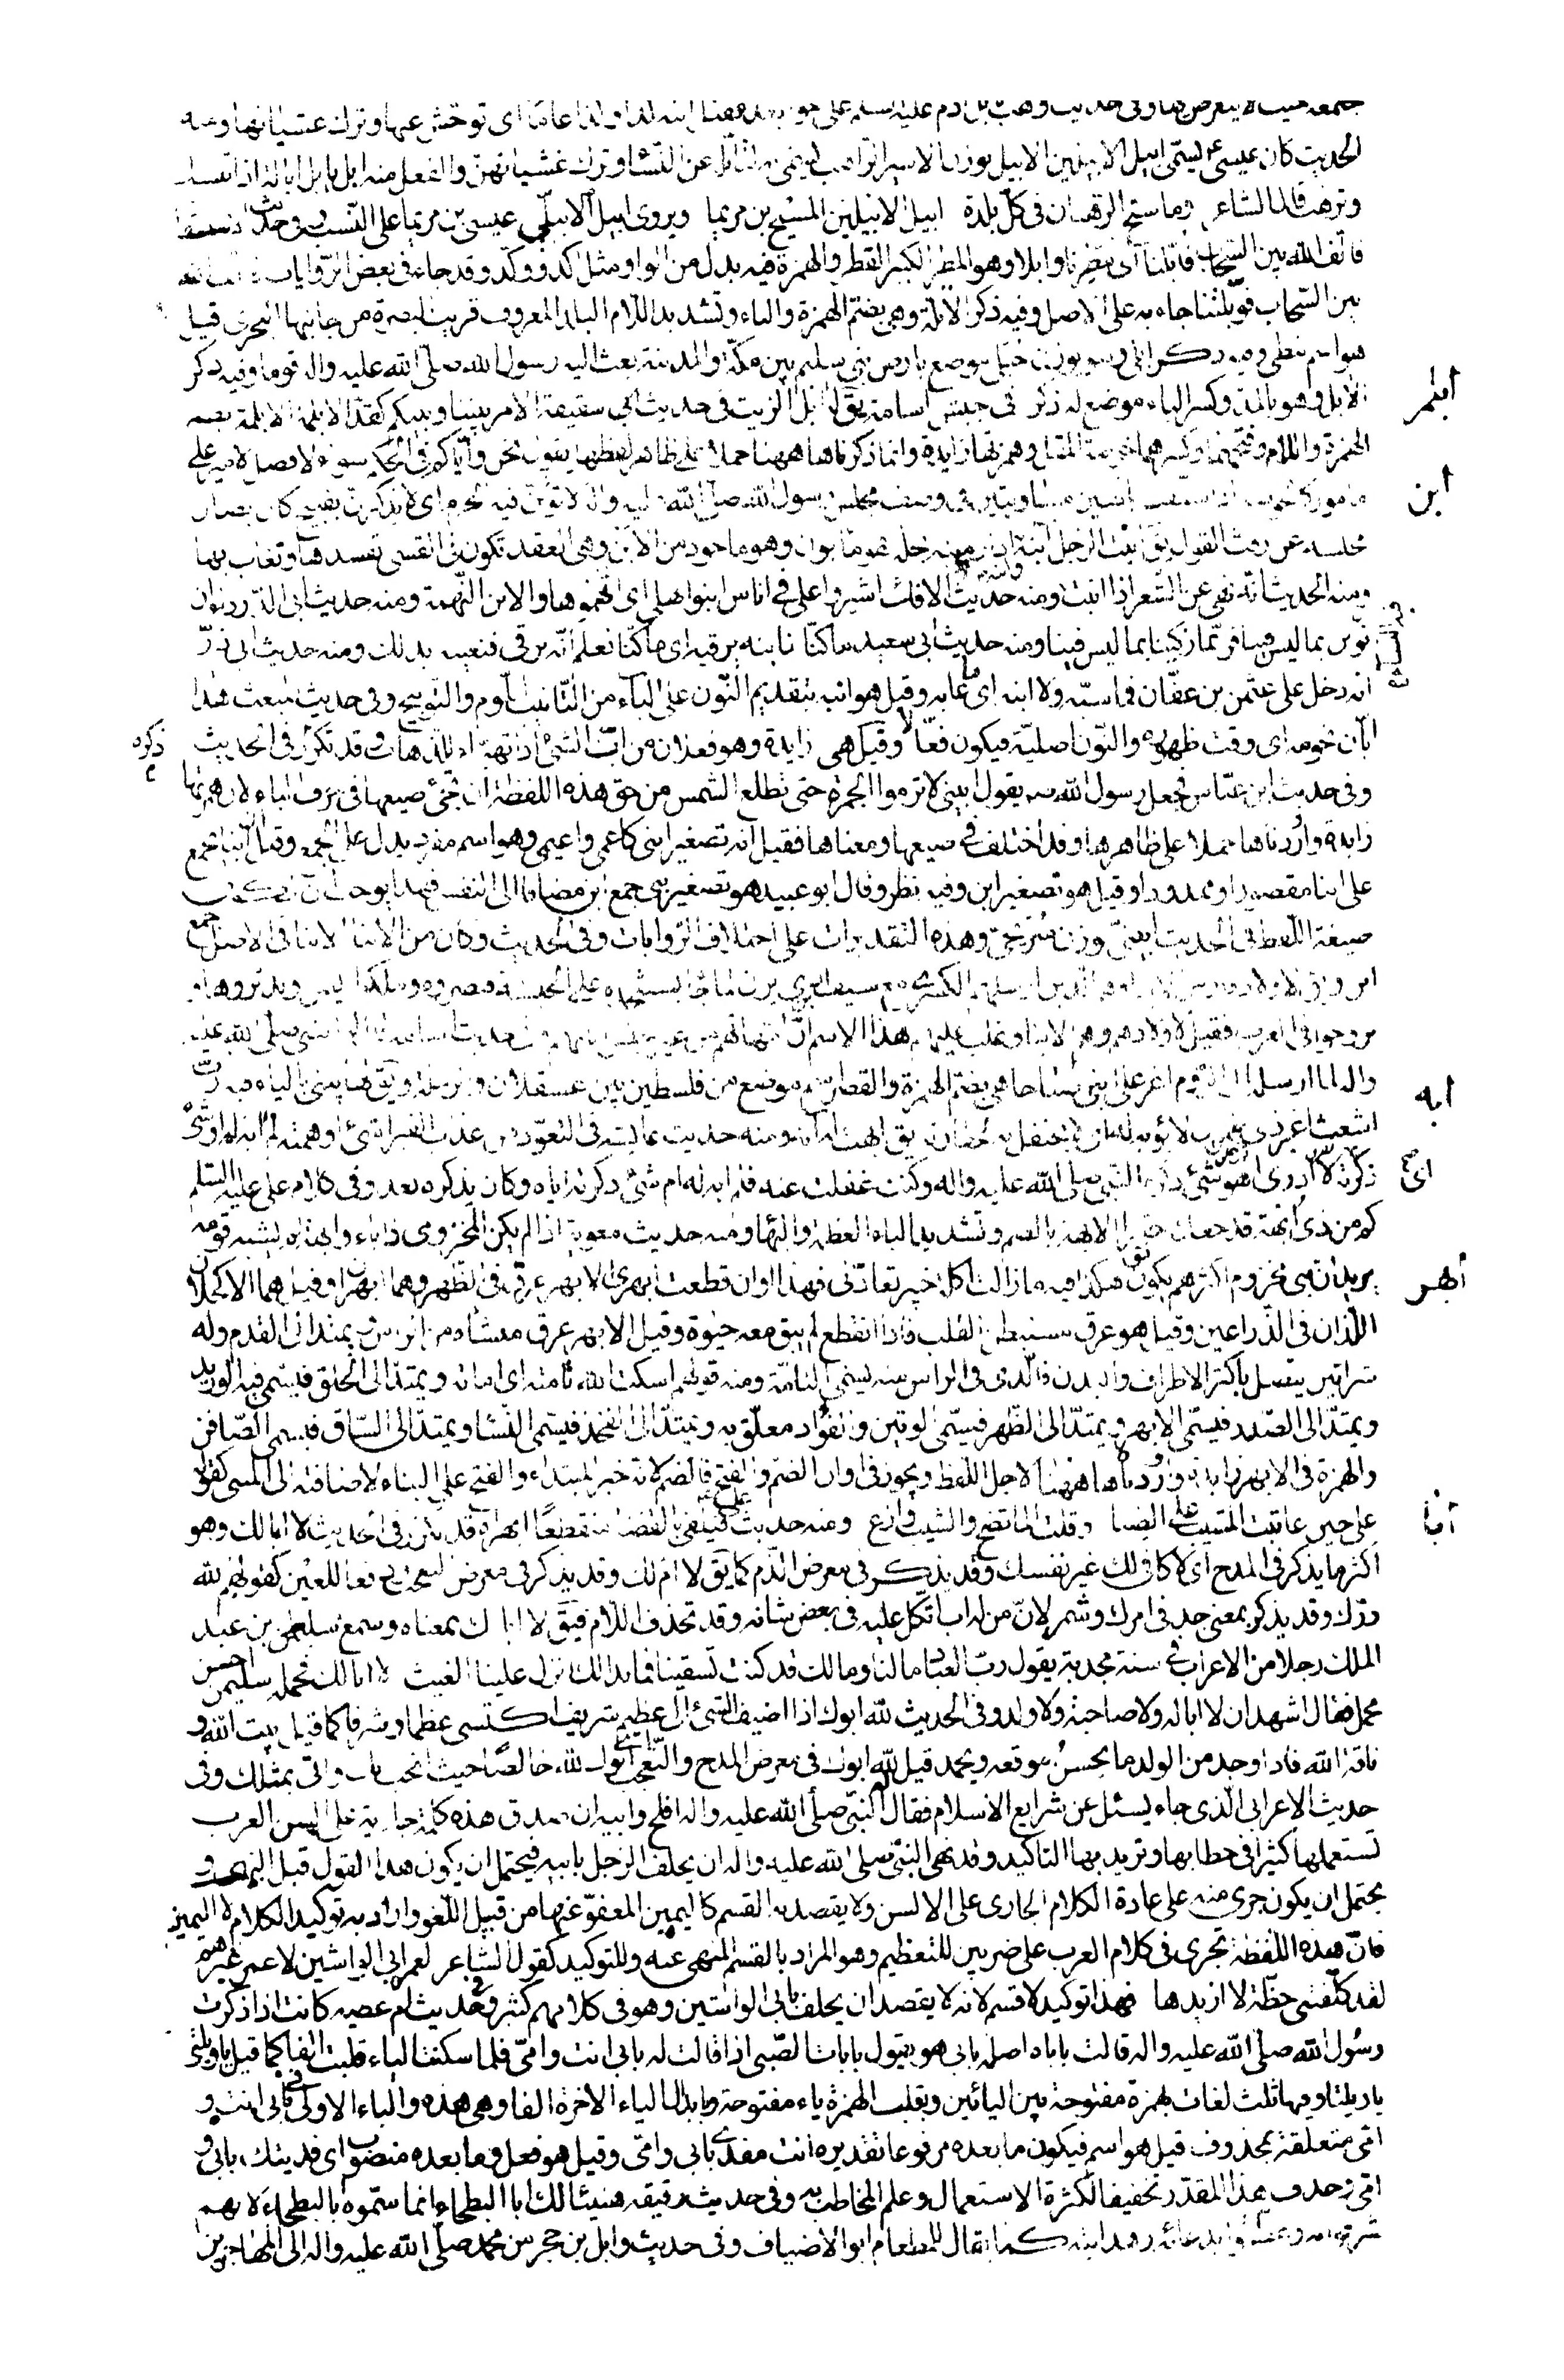 الحديث كان عيسى ع يسمّى ابيل الابيلين الابيل بوزن الامير الراهب سمّى به لتأبّله عن النساء وترك غشيانهن والفعل منه ابل يابل ابالة اذا تنسك
وترهب قال الشاعر وما سبّح الرهبان في كلّ بلدة ابيل الابيلين المسيح بن مريما ويروى ابيل الابيليّن عيسى بن مريما على النسب وفي حديث الاستسقاء
فالّف الله بين السحاب فأبلنا اى مطرنا وابلا وهو المطر الكثير القطر والهمزة فيه بدل من الواو مثل اكّد ووكّد وقد جاء في بعض الروايات فالّف الله
بين السحاب فوبلتنا جاء به على الاصل وفيه ذكر الابلّة وهى بضمّ الهمزة والباء وتشديد اللام البلد المعروف قرب البصرة من جانبها البحرى قيل
هو اسم نبطى وفيه ذكر ابلى وهو بوزن حبلى موضع بارض بنى سليم بين مكّة والمدينة بعث اليه رسول الله صلى الله عليه واله قوما وفيه ذكر
الآبل وهو بالمدّ وكسر الباء موضع له ذكر في جيش اسامة يقال له ابل الزيت في حديث السقيفة الامر بيننا وبينكم كقدّ الابلمة الابلمة بضم
ابلم
الهمزة واللام وفتحهما وكسرهما خوصة المقل وهمزتها زايدة وانما ذكرناها ههنا حملا على ظاهر لفظها يقول نحن وايّاكم في الحكم سواء لا فضل لامير على
مأمور كالخوصة اذا شقّت اثنتين متساويتين في وصف مجلس رسول الله صلى الله عليه واله لا تؤبن فيه الحرم اى لا يذكرن بقبيح كان يصان
ابن
مجلسه عن رفث القول يق ابنت الرجل آبنه اذا رميته بخلّة سوء فهو مأبون وهو مأخوذ من الابن وهى العقد تكون في القسى تفسدها وتعاب بها
ومنه الحديث انّه نهى عن الشعر اذا ابنت فيه النساء ومنه حديث الافك اشيروا علىّ في اناس ابنوا اهلى اى اتّهموها والابن التهمة ومنه حديث ابى الدرداء ان
نؤبن بما ليس فينا فربّما زكّينا بما ليس فينا ومنه حديث ابى سعيد ما كنّا نأبنه برقية اى ما كنّا نعلم انّه يرقى فنعيبه بذلك ومنه حديث ابى ذرّ
انه دخل على عثمن بن عفّان فما سبّه ولا ابنه اى ما عابه وقيل هو انبه بتقديم النون على الباء من التأنيب اللّوم والتوبيخ وفي حديث المبعث هذا
ابّان نجومه اى وقت ظهوره والنون اصليّة فيكون فعّالا وقيل هى زايدة وهو فعلان من ابّ الشئ اذا تهيّأ للذهاب وقد تكرّر في الحديث
ذكره
وفي حديث ابن عبّاس فجعل رسول الله ص يقول ابينىّ لا ترموا الجمرة حتى تطلع الشمس من حق هذه اللفظة ان تجئ صيغها في حرف الباء لان همزتها
زايدة واوردناها حملا على ظاهرها وقد اختلف في صيغها ومعناها فقيل انّه تصغير ابنى كاعمى واعيمى وهو اسم مفرد يدل على الجمع وقيل انّ ابنا يجمع
على ابنا مقصورا وممدودا وقيل هو تصغير ابن وفيه نظر وقال ابو عبيد هو تصغير بنىّ جمع ابن مضافا الى النفس فهذا يوجب ان تكون
صيغة اللفظ في الحديث ابينىّ بوزن سريجىّ وهذه التقديرات على اختلاف الروايات وفي الحديث وكان من الابناء الابناء في الاصل جمع
وتزوجوا في العرب فقيل لاولادهم الابنا وغلب عليهم هذا الاسم لانّ امّهاتهم من غير جنس ابائهم وفي حديث اسامة قال له النبى صلى الله عليه
واله لما ارسله الى الروم اغر على ابنى صباحا هى بضمّ الهمزة والقصر اسم موضع من فلسطين بين عسقلان والرملة ويقال لها يبنى بالياء فيه ربّ
ابه
اشعث اغبر ذى طمرين لا يؤبه له اى لا يحتفل به لحقارته يق ابهت له آبه ومنه حديث عايشة في التعوّذ من عذاب القبر اشئ اوهمته لم آبه له او شئ
ذكّرته ايّاه اى لا ادرى اهو شئ ذكره النبى صلى الله عليه واله وكنت غفلت عنه فلم ابه له ام شئ ذكّرته ايّاه وكان يذكره بعد وفي كلام على عليه السلام
كم من ذى ابّهة قد جعلته حقيرا الابّهة بالضم وتشديد الباء العظمة والبهاء ومنه حديث معوية اذا لم يكن المخزومى ذا باء وابّهة لم يشبه قومه
يريد ان بنى مخزوم اكثرهم يكون هكذا فيه ما زالت اكلة خيبر تعادّنى فهذا اوان قطعت ابهرى الابهر عرق في الظهر وهما ابهران وقيل هما الاكحلان
ابهر
اللذان في الذراعين وقيل هو عرق مستبطن القلب فاذا انقطع لم يبق معه حيوة وقيل الابهر عرق منشأه من الرأس ويمتدّ الى القدم وله
شرايين يتّصل باكثر الاطراف والبدن فالذى في الراس منه يسمّى النامّة ومنه قولهم اسكت الله نامّته اى اماته ويمتدّ الى الحلق فيسمّى فيه الوريد
ويمتدّ الى الصدر فيسمّى الابهر ويمتدّ الى الظهر فيسمّى الوتين والفؤاد معلّق به ويمتدّ الى الفخذ فيسمّى النسا ويمتدّ الى الساق فيسمى الصافن
والهمزة في الابهر زايدة واوردناها ههنا لاجل اللفظ ويجوز في اوان الضم والفتح فالضم لانه خبر المبتداء والفتح على البناء لاضافته الى المبنى كقوله
على حين عاتبت المشيب على الصبا وقلت المّا تصح والشيب وازع ومنه حديث على ع فيلقى بالفضا منقطعا ابهراه قد تكرر في الحديث لا ابا لك وهو
ابا
اكثر ما يذكر في المدح اى لا كافى لك غير نفسك وقد يذكر في معرض الذم كما يق لا امّ لك وقد يذكر في معرض التعجب دفعا للعين كقولهم لله
درّك وقد يذكر بمعنى جدّ في امرك وشمّر لانّ من له اب اتّكل عليه في بعض شانه وقد تحذف اللام فيق لا اباك بمعناه وسمع سليمن بن عبد
الملك رجلا من الاعراب في سنة مجدبة يقول ربّ العباد ما لنا وما لك قد كنت تسقينا فما بدا لك انزل علينا الغيث لا ابا لك فحمله سليمن احسن
محمل فقال اشهد ان لا ابا له ولا صاحبة ولا ولد وفي الحديث لله ابوك اذا اضيف الشئ الى عظيم شريف اكتسى عظما وشرفا كما قيل بيت الله و
ناقة الله فاذا وجد من الولد ما يحسن موقعه ويحمد قيل لله ابوك في معرض المدح والتعجب اى ابوك لله خالصا حيث انجب بك واتى بمثلك وفي
حديث الاعرابى الذى جاء يسئل عن شرايع الاسلام فقال له النبىّ صلى الله عليه واله افلح وابيه ان صدق هذه كلمة جارية على السن العرب
تستعملها كثيرا في خطابها وتريد بها التاكيد وقد نهى النبىّ صلى الله عليه واله ان يحلف الرجل بابيه فيحتمل ان يكون هذا القول قبل النهى و
يحتمل ان يكون جرى منه على عادة الكلام الجارى على الالسن ولا يقصد به القسم كاليمين المعفوّ عنها من قبيل اللغو واراد به توكيد الكلام لا اليمين
فانّ هذه اللفظة تجرى في كلام العرب على ضربين للتعظيم وهو المراد بالقسم المنهى عنه وللتوكيد كقول الشاعر لعمر ابى الواشين لا عمر غيرهم
لقد كلّفتنى خطّة لا اريدها فهذا توكيد لا قسم لانه لا يقصد ان يحلف بابى الواشين وهو في كلامهم كثير وفي حديث ام عطيه كانت اذا ذكرت
رسول الله صلى الله عليه واله قالت باباه اصله بابى هو يقول باباات الصبى اذا قالت له بابى انت وامّى فلما سكنت الياء قلبت الفا كما قيل يا ويلتى
يا ويلتا وفيها ثلث لغات بهمزة مفتوحة بين البائين وبقلب الهمزة ياء مفتوحة وبابدال الياء الاخرة الفا وهى هذه والباء الاولى في بابى انت و
امّى متعلقة بمحذوف قيل هو اسم فيكون ما بعده مرفوعا تقديره انت مفدى بابى وامّى وقيل هو فعل وما بعده منصوب اى فديتك بابى و
امّى وحذف هذا المقدّر تخفيفا لكثرة الاستعمال وعلم المخاطب به وفي حديث رقيقه هنيئا لك ابا البطحاء انما سمّوه ابا البطحاء لانهم
شرفوا به وعظموا بدعائه وهدايته كما يقال للمطعام ابو الاضياف وفي حديث وايل بن حجر من محمد صلى الله عليه واله الى المهاجر بن